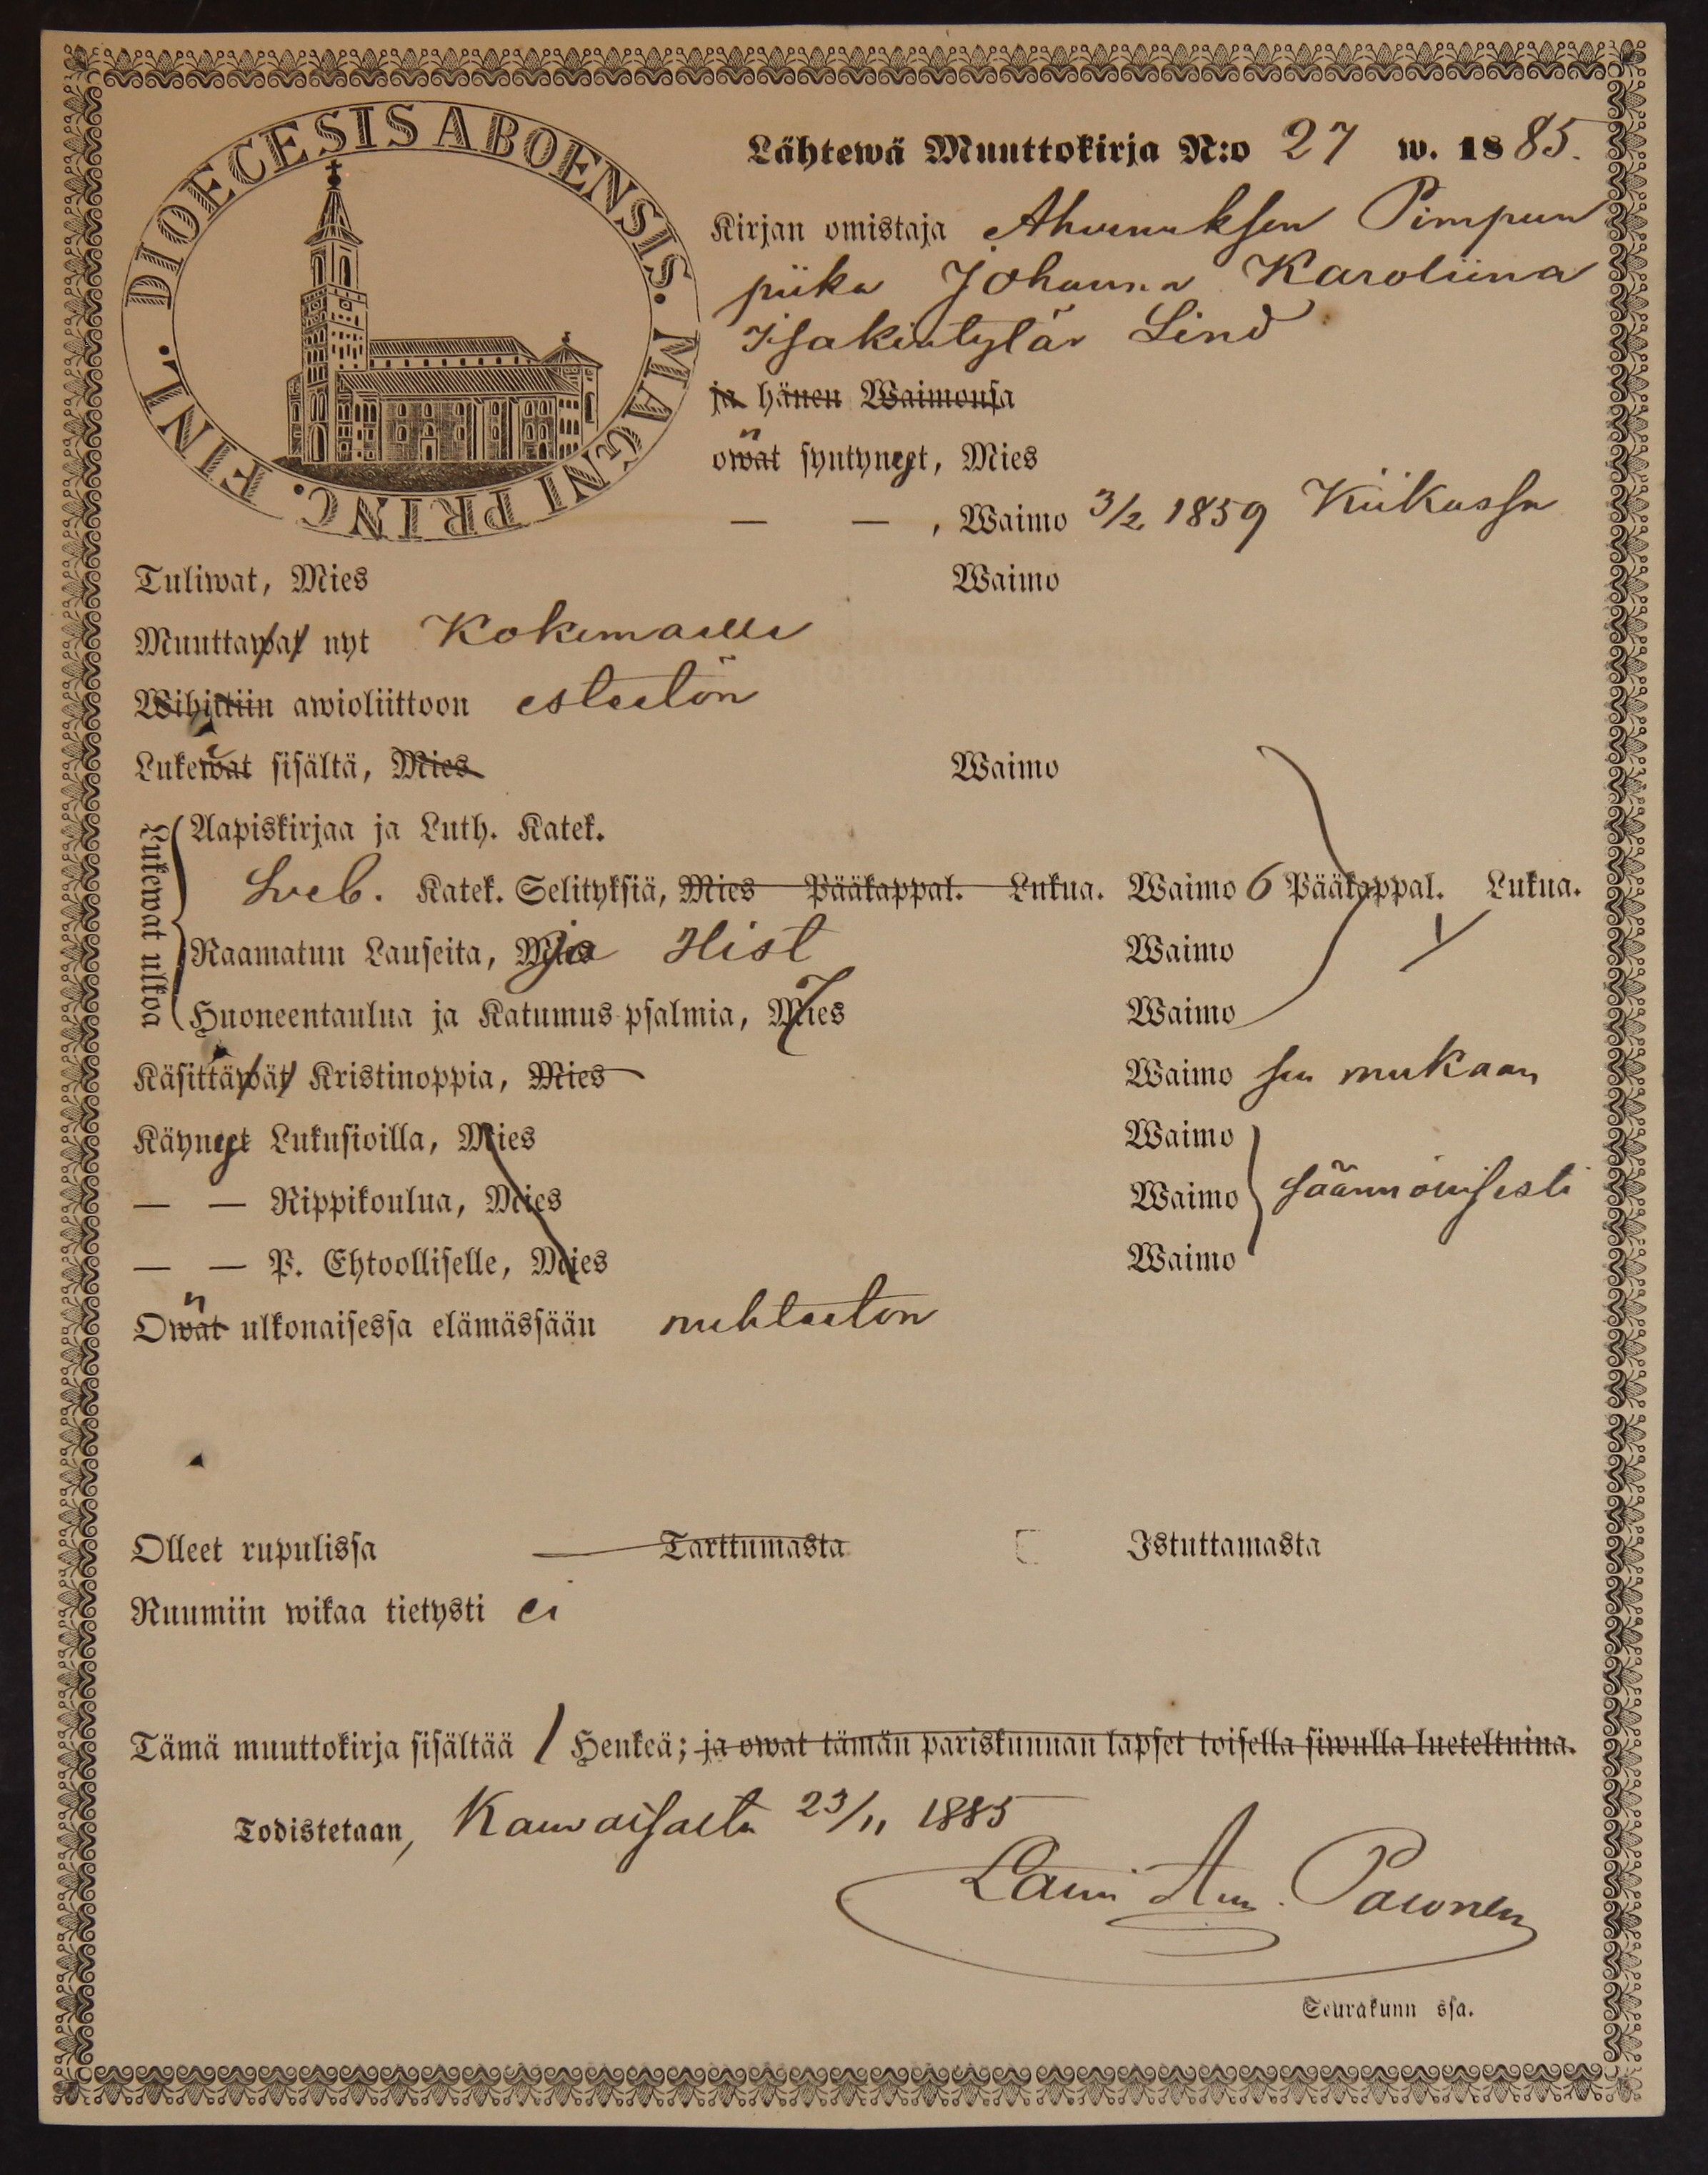 DIOECESIS ABOENSIS. MAGNI PRINC. FINL.
Lähtewä Muuttokirja N:o 27 w. 1885.
Kirjan omistaja Ahvenuksen Pimpun
piika Johanna Karoliina
Isakintytär Lind
ja hänen Waimonsa
owat syntyneet, Mies
— — , Waimo 3/2 1859 Kiikassa
Tuliwat, Mies Waimo
Muuttawat nyt Kokemäelle
Wihittiin awioliittoon esteetön
Lukewat sisältä, Mies Waimo
Lukewat ulkoa
Aapiskirjaa ja Luth. Katek.
Sveb. Katek. Selityksiä, Mies Pääkappal. Lukua. Waimo 6 Pääkappal. Lukua.
Raamatun Lauseita, Mies ja Hist Waimo
Huoneentaulua ja Katumus-psalmia, Mies Waimo
Käsittäwät Kristinoppia, Mies Waimo sen mukaan
Käyneet Lukusioilla, Mies Waimo
— — Rippikoulua, Mies Waimo säännöllisesti
— — P. Ehtoolliselle, Mies Waimo
Owat ulkonaisessa elämässään nuhteeton
Olleet rupulissa Tarttumasta Istuttamasta
Ruumiin wikaa tietysti ei
Tämä muuttokirja sisältää 1 Henkeä; ja owat tämän pariskunnan lapset toisella siwulla lueteltuina.
Todistetaan, Kauvatsalta 23/11 1885
Lauri Paronen
Seurakunn ssa.